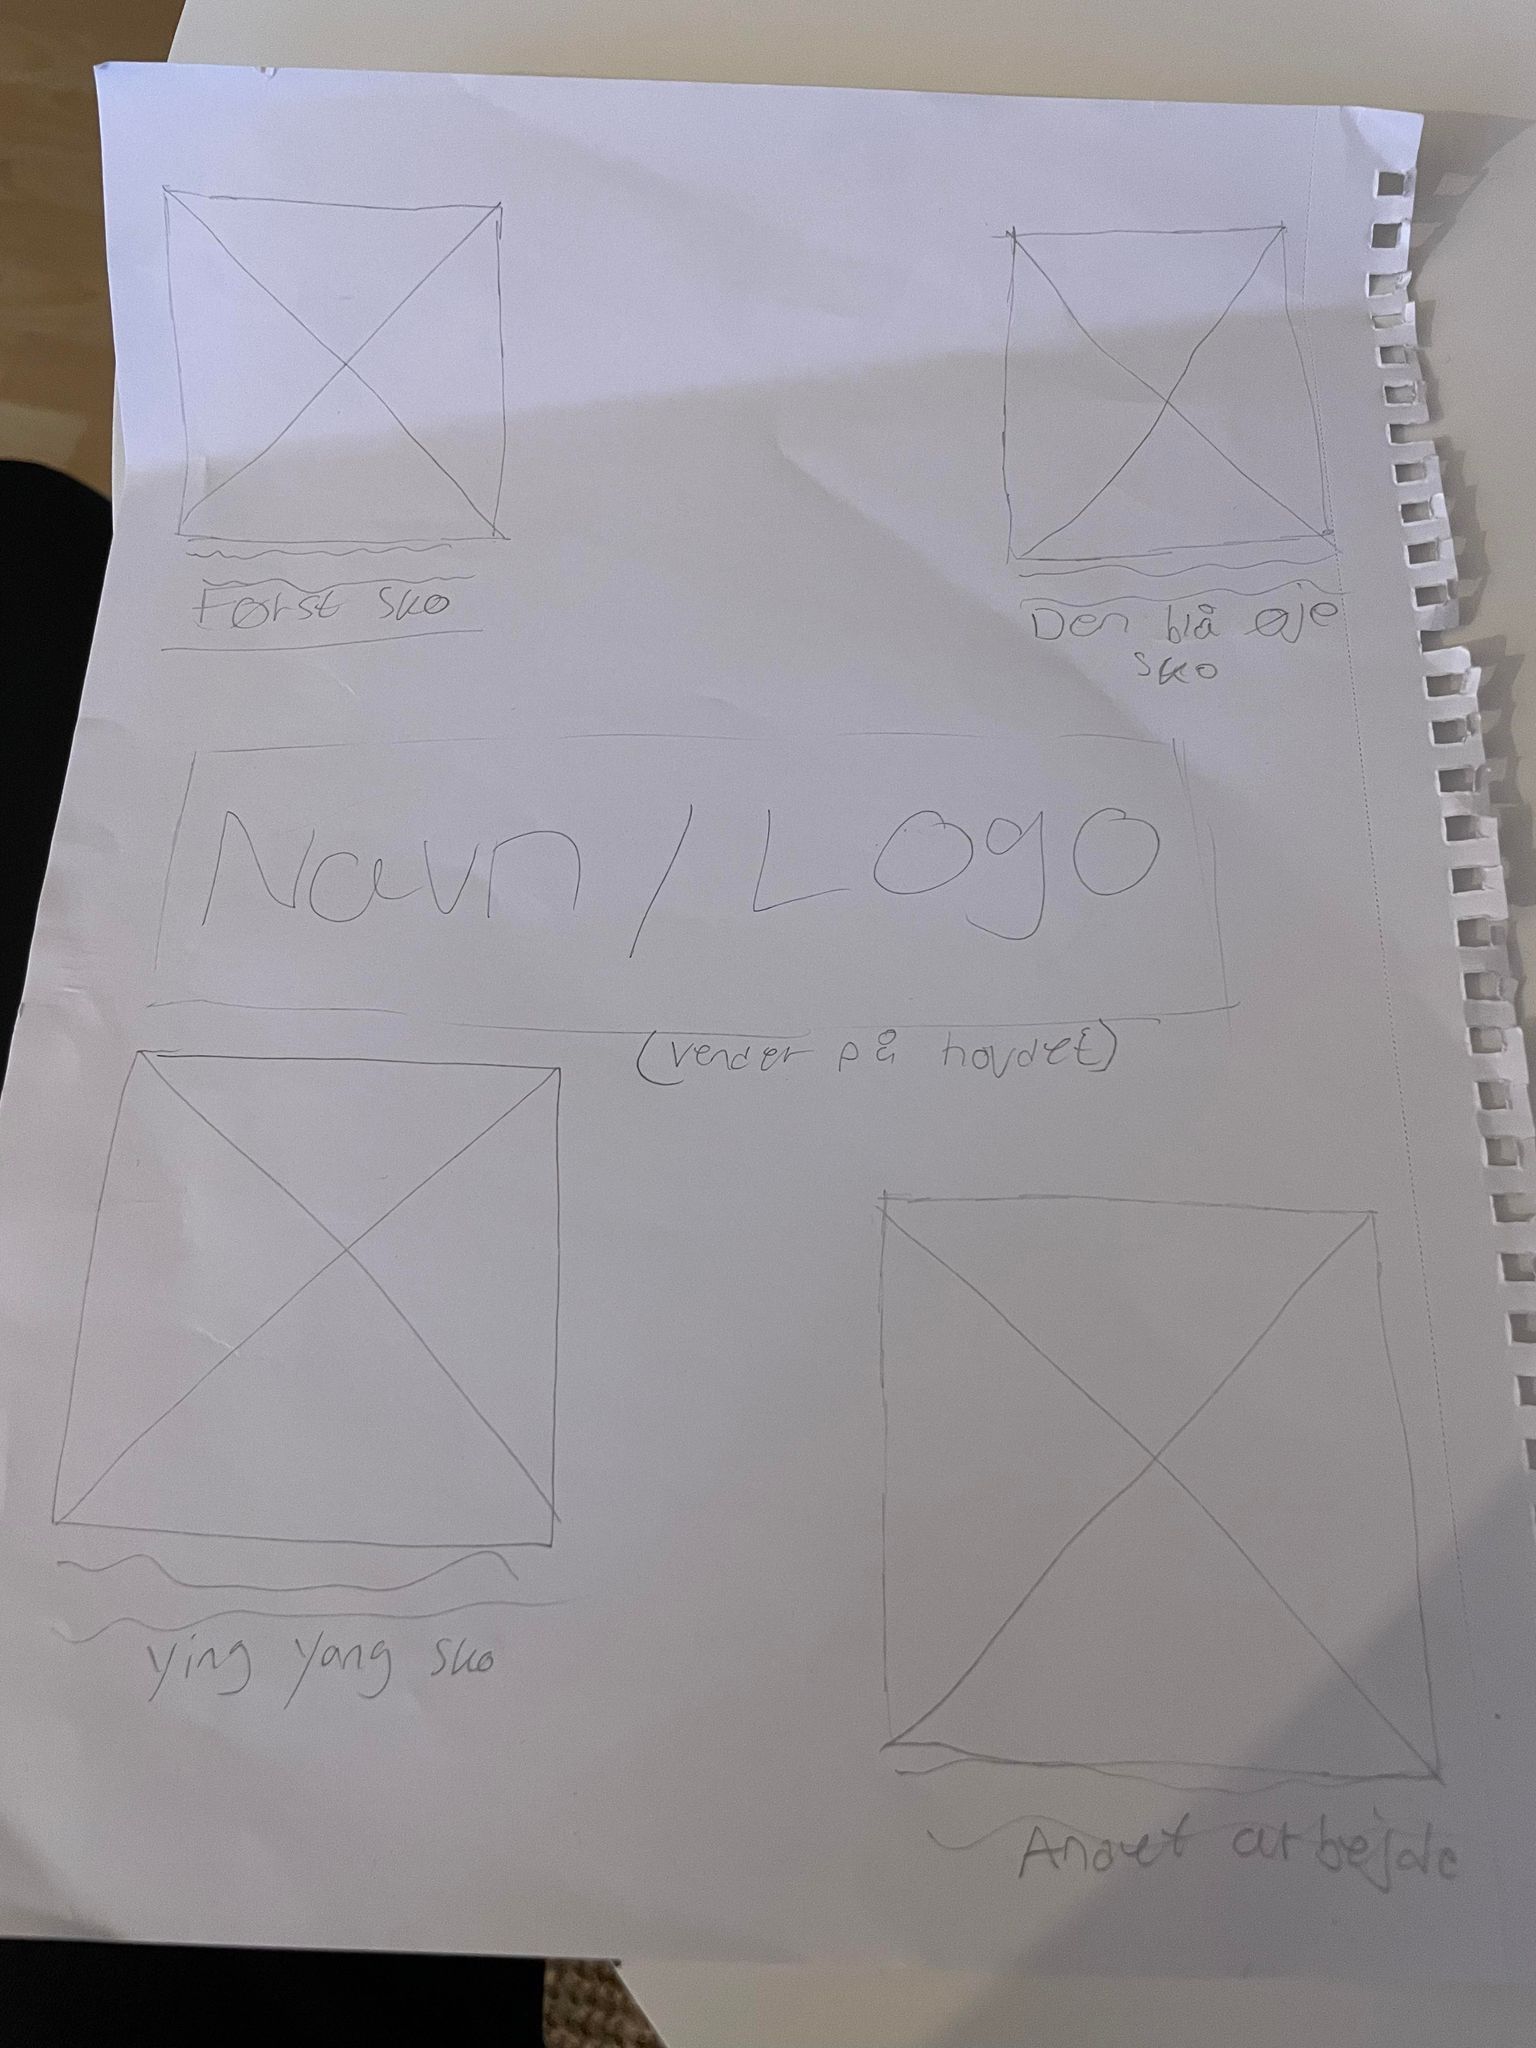 Først sko
Den blå øje
sko
Navn / Logo
(vender på hovdet)
Ying Yang sko
Andet arbejde